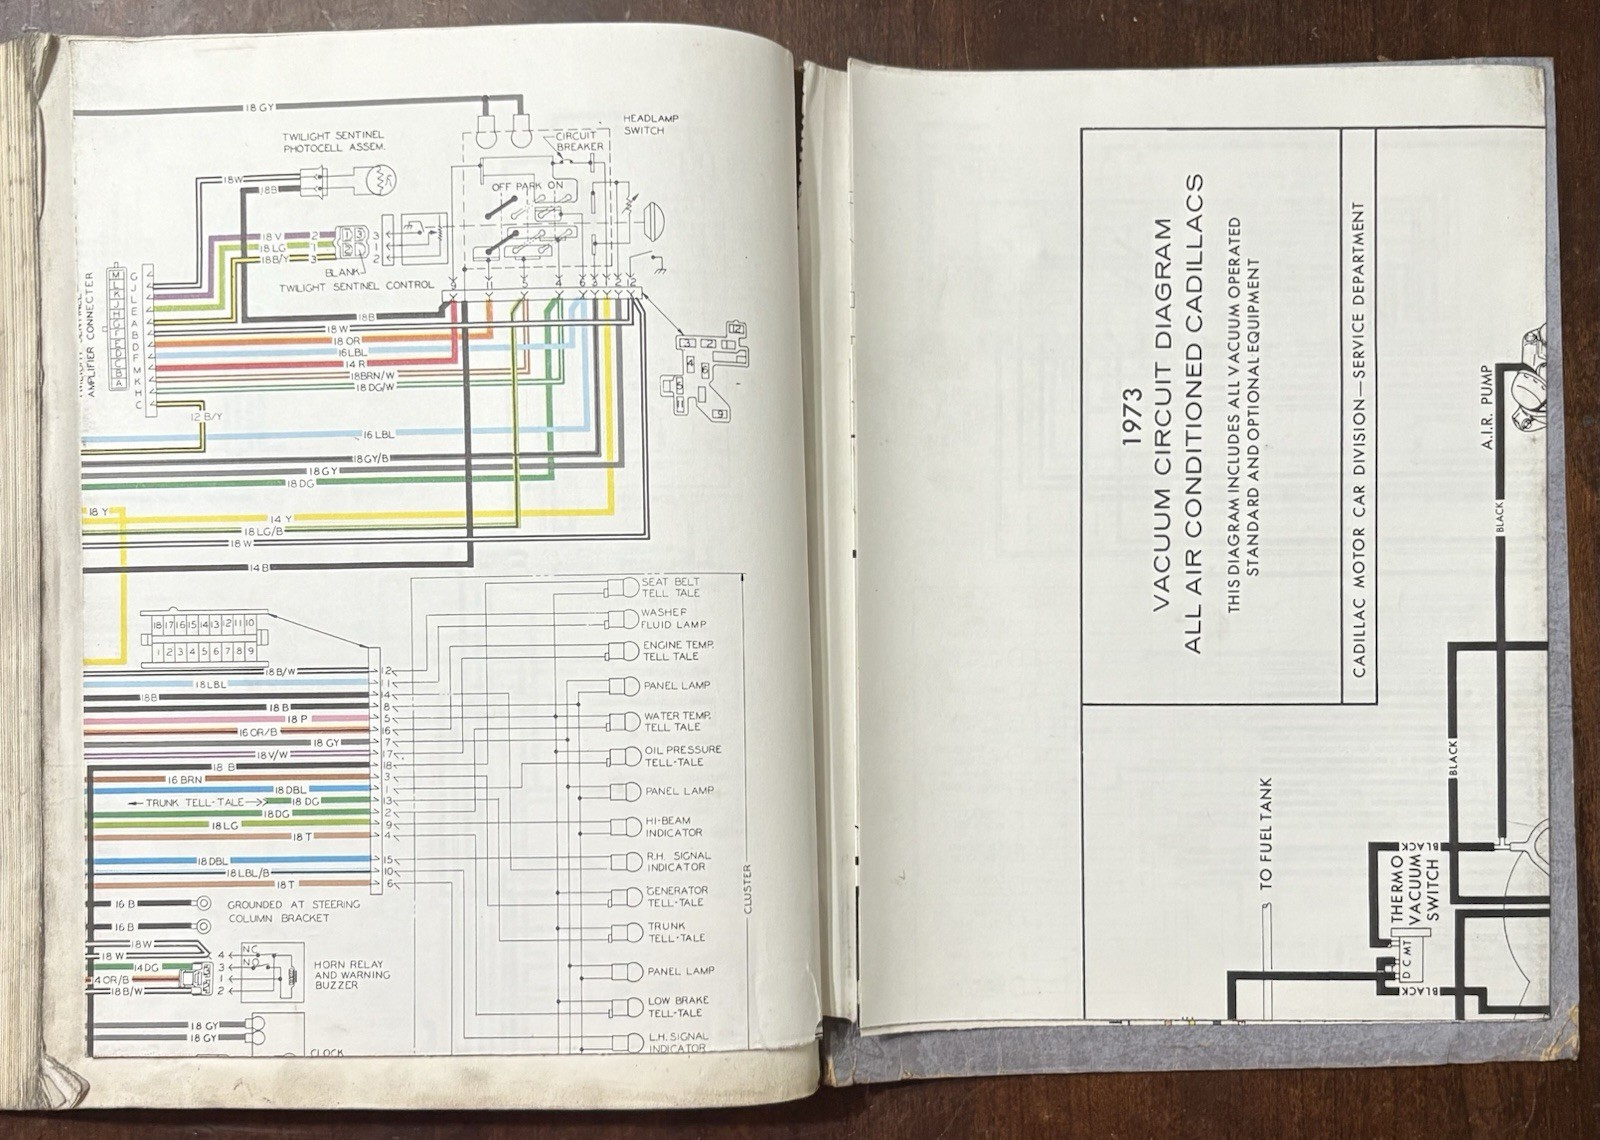 18 GY
HEADLAMP
SWITCH
TWILIGHT SENTINEL
PHOTOCELL ASSEM.
CIRCUIT
BREAKER
18W
18B
OFF PARK ON
18 V 2
18 LG 1
18B/Y 3
1 3
2
3
1
2
BLANK
TWILIGHT SENTINEL CONTROL
AMPLIFIER CONNECTER
G
J
L
E
A
B
D
F
M
K
H
C
18B
18W
18 OR
16LBL
14 R
18BRN/W
18 DG/W
12 B/Y
16 LBL
18GY/B
18GY
18 DG
18 Y
14 Y
18 LG/B
18 W
14 B
12
3
2
4
9
18 17 16 15 14 13 12 11 10
1 2 3 4 5 6 7 8 9
18B/W 12
18LBL 11
18B 14
18 B 8
18 P 5
16 OR/B 16
18 GY 7
18V/W 17
18 B 18
16 BRN 3
18DBL 1
TRUNK TELL-TALE 18 DG 13
18DG 2
18LG 9
18 T 4
18DBL 15
18LBL/B 10
18T 6
16 B
GROUNDED AT STEERING
COLUMN BRACKET
16 B
18W
18 W
14DG
4OR/B
18B/W
4
3
1
2
N.C.
N.O.
HORN RELAY
AND WARNING
BUZZER
18 GY
18 GY
CLOCK
SEAT BELT
TELL TALE
WASHER
FLUID LAMP
ENGINE TEMP.
TELL TALE
PANEL LAMP
WATER TEMP.
TELL TALE
OIL PRESSURE
TELL-TALE
PANEL LAMP
HI-BEAM
INDICATOR
R.H. SIGNAL
INDICATOR
GENERATOR
TELL-TALE
TRUNK
TELL-TALE
PANEL LAMP
LOW BRAKE
TELL-TALE
L.H. SIGNAL
INDICATOR
CLUSTER
1973
VACUUM CIRCUIT DIAGRAM
ALL AIR CONDITIONED CADILLACS
THIS DIAGRAM INCLUDES ALL VACUUM OPERATED
STANDARD AND OPTIONAL EQUIPMENT
CADILLAC MOTOR CAR DIVISION—SERVICE DEPARTMENT
A.I.R. PUMP
BLACK
BLACK
TO FUEL TANK
BLACK
THERMO
VACUUM
SWITCH
D C MT
BLACK